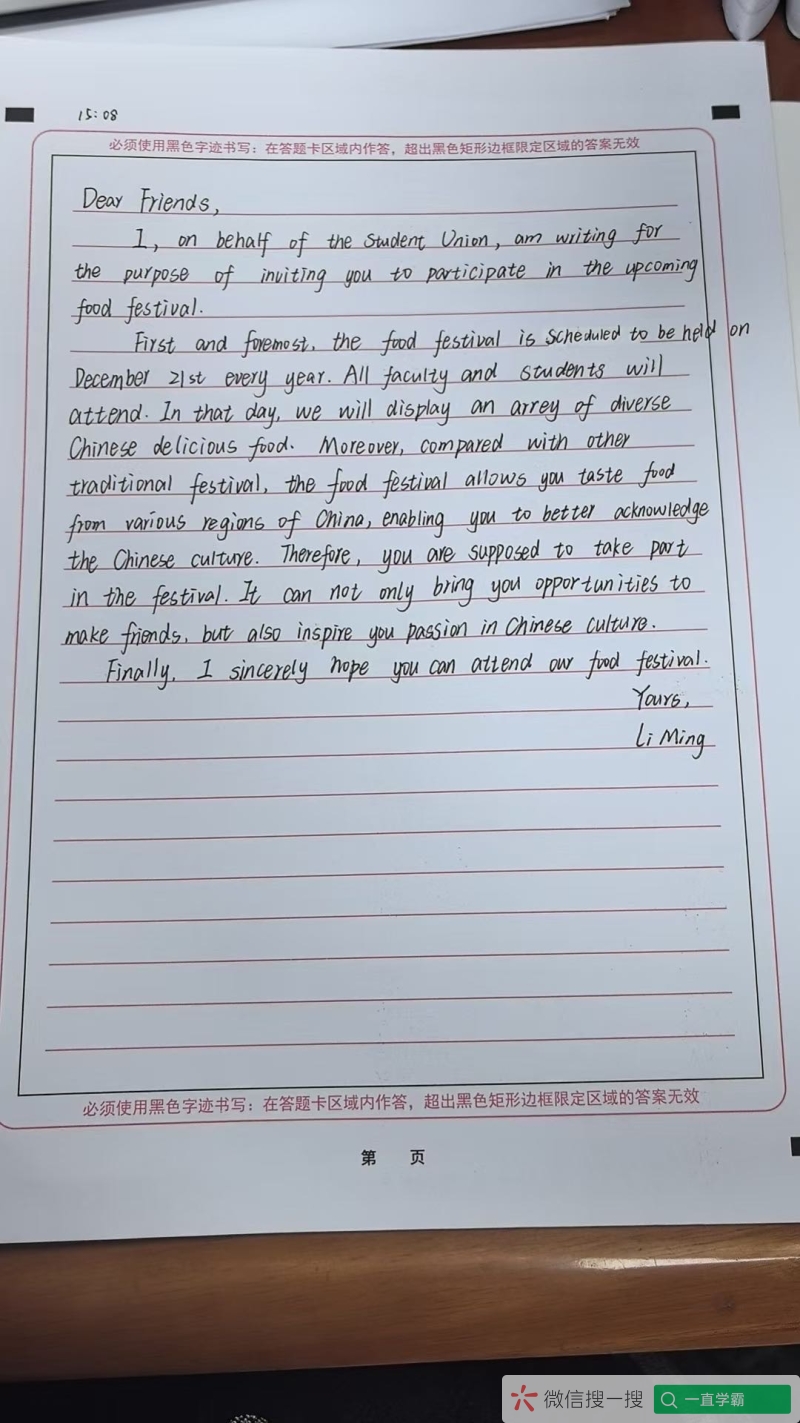 15:08
必须使用黑色字迹书写：在答题卡区域内作答，超出黑色矩形边框限定区域的答案无效
Dear Friends,
I, on behalf of the Student Union, am writing for
the purpose of inviting you to participate in the upcoming
food festival.
First and foremost, the food festival is scheduled to be held on
December 21st every year. All faculty and students will
attend. In that day, we will display an arrey of diverse
Chinese delicious food. Moreover, compared with other
traditional festival, the food festival allows you taste food
from various regions of China, enabling you to better acknowledge
the Chinese culture. Therefore, you are supposed to take part
in the festival. It can not only bring you opportunities to
make friends, but also inspire you passion in Chinese culture.
Finally, I sincerely hope you can attend our food festival.
Yours,
Li Ming
必须使用黑色字迹书写：在答题卡区域内作答，超出黑色矩形边框限定区域的答案无效
第 页
微信搜一搜 一直学霸